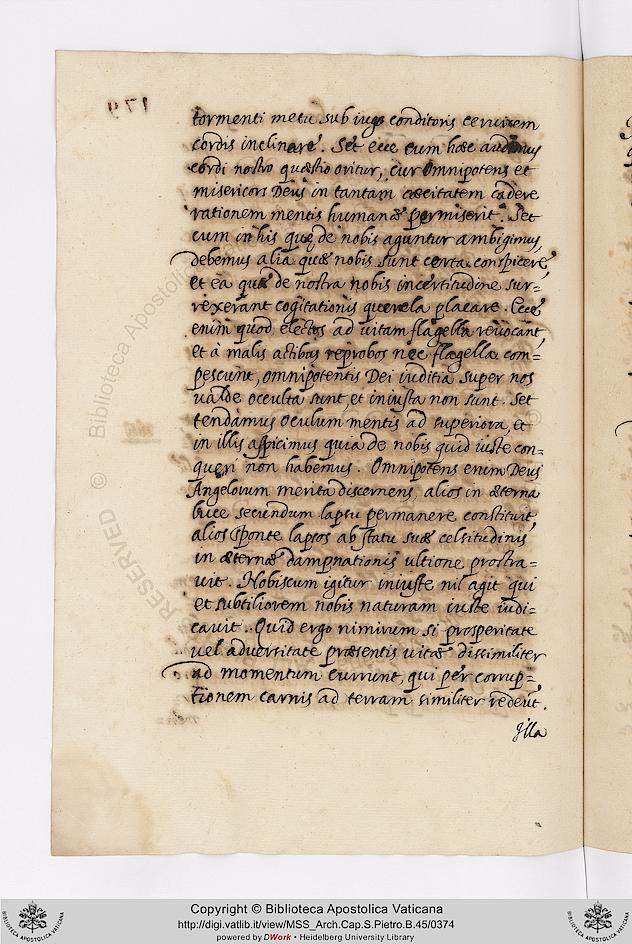 179
tormenti metu sub iugo conditoris ceruicem
cordis inclinare. Set ecce cum hæc audimus
cordi nostro quæstio oritur, cur Omnipotens et
misericors Deus in tantam cæcitatem cadere
rationem mentis humanæ permiserit. Set
cum in his quę de nobis aguntur ambigimus,
debemus alia quæ nobis sunt certa conspicere,
et ea quæ de nostra nobis incertitudine sur=
rexerant cogitationis querela placare. Ecce
enim quod electos ad vitam flagella reuocant,
et à malis actibus reprobos nec flægella com=
pescunt, omnipotentis Dei iuditia super nos
ualde occulta sunt, et iniusta non sunt. Set
tendamus oculum mentis ad superiora, et
in illis aspicimus quia de nobis quid iuste con=
queri non habemus. Omnipotens enim Deus
Angelorum merita discernens, alios in æterna
luce secundum lapsu permanere constituit,
alios sponte lapsos ab statu suæ celsitudinis
in æternæ dampnationis ultione prostra=
uit. Nobiscum igitur iniuste nil agit qui
et subtiliorem nobis naturam iuste iudi=
cauit. Quid ergo nimirum si prosperitate
uel aduersitate præsentis uitæ dissimiliter
ad momentum currunt, qui per corrup=
tionem carnis ad terram similiter redeūt.
Illa
RESERVED © Biblioteca Apostolica Vaticana
Copyright © Biblioteca Apostolica Vaticana
http://digi.vatlib.it/view/MSS_Arch.Cap.S.Pietro.B.45/0374
powered by DWork • Heidelberg University Library